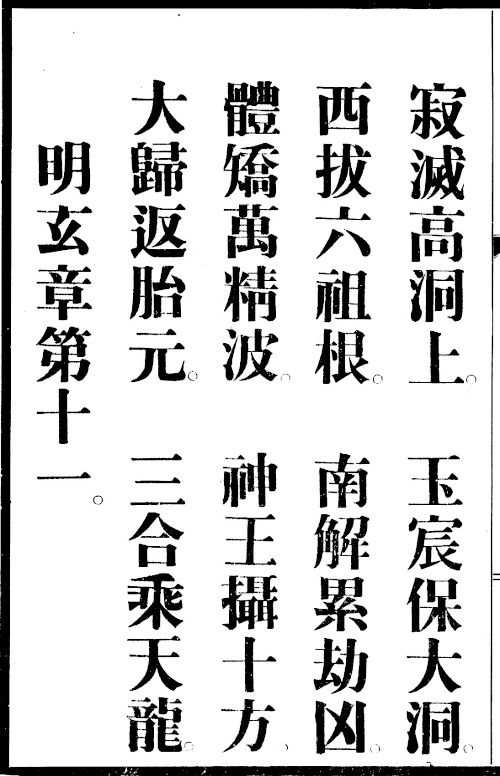 寂滅高洞上。　玉宸保大洞。
西拔六祖根。　南解累劫凶。
體矯萬精波。　神王攝十方。
大歸返胎元。　三合乘天龍。
明玄章第十一。